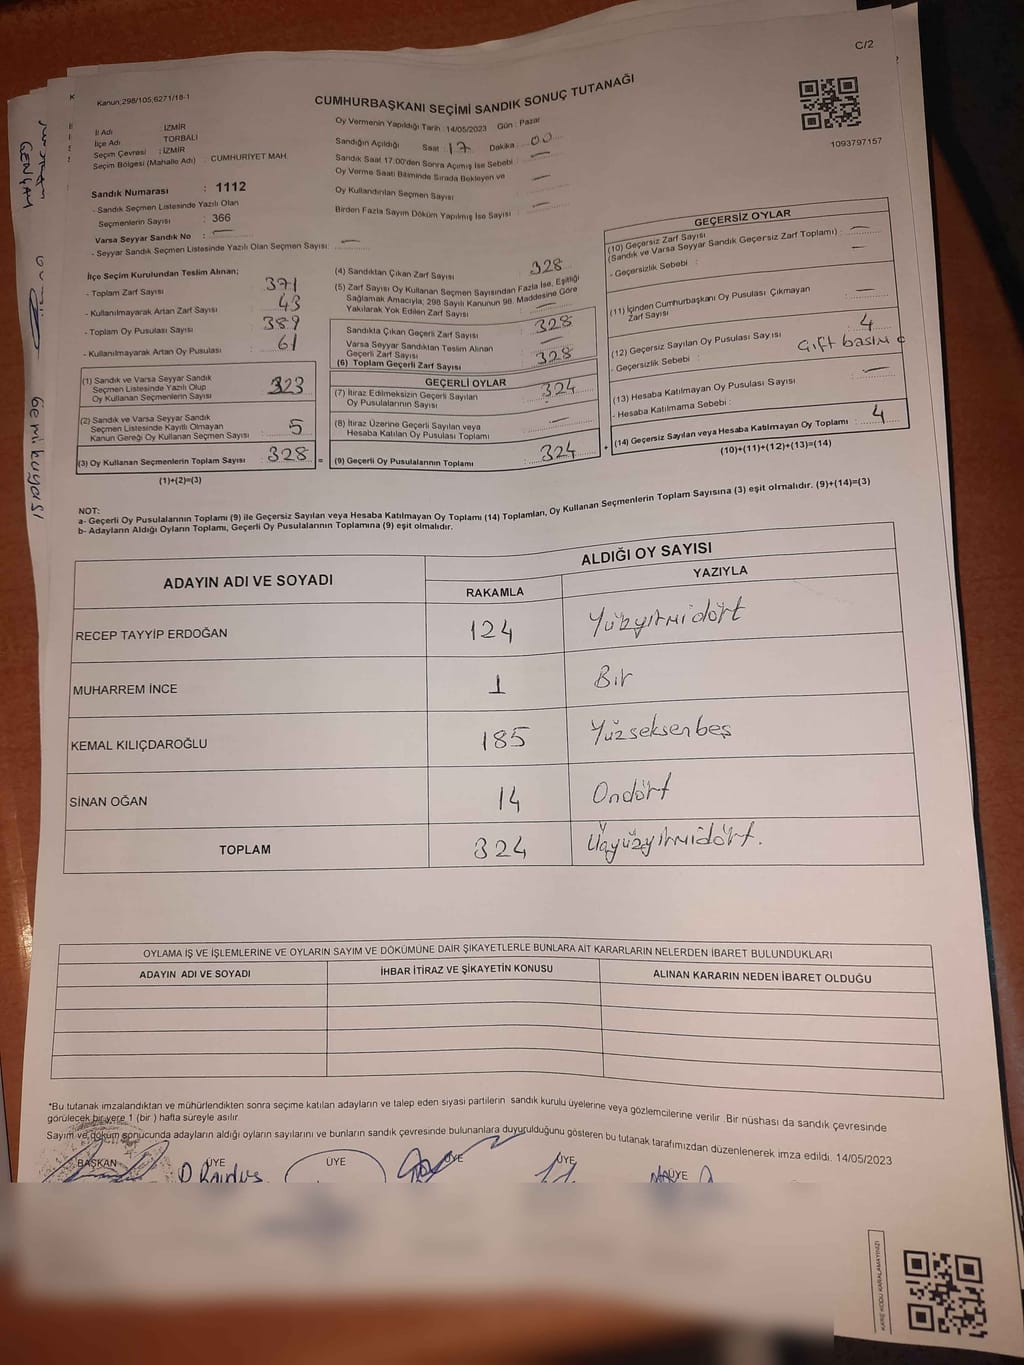 C/2
Kanun;298/105;6271/18-1
CUMHURBAŞKANI SEÇİMİ SANDIK SONUÇ TUTANAĞI
1093797157
İl Adı : İZMİR
İlçe Adı : TORBALI
Seçim Çevresi : İZMİR
Seçim Bölgesi (Mahalle Adı) : CUMHURİYET MAH
Sandık Numarası : 1112
- Sandık Seçmen Listesinde Yazılı Olan
Seçmenlerin Sayısı : 366
Varsa Seyyar Sandık No : —
- Seyyar Sandık Seçmen Listesinde Yazılı Olan Seçmen Sayısı: —
Oy Vermenin Yapıldığı Tarih : 14/05/2023 Gün : Pazar
Sandığın Açıldığı Saat : 17 Dakika : 00
Sandık Saat 17.00'den Sonra Açımış İse Sebebi : —
Oy Verme Saati Bitiminde Sırada Bekleyen ve
Oy Kullandırılan Seçmen Sayısı —
Birden Fazla Sayım Döküm Yapılmış İse Sayısı : —
İlçe Seçim Kurulundan Teslim Alınan;
- Toplam Zarf Sayısı : 371
- Kullanılmayarak Artan Zarf Sayısı : 43
- Toplam Oy Pusulası Sayısı : 389
- Kullanılmayarak Artan Oy Pusulası : 61
(1) Sandık ve Varsa Seyyar Sandık
Seçmen Listesinde Yazılı Olup
Oy Kullanan Seçmenlerin Sayısı : 323
(2) Sandık ve Varsa Seyyar Sandık
Seçmen Listesinde Kayıtlı Olmayan
Kanun Gereği Oy Kullanan Seçmen Sayısı : 5
(3) Oy Kullanan Seçmenlerin Toplam Sayısı : 328
(1)+(2)=(3)
(4) Sandıktan Çıkan Zarf Sayısı : 328
(5) Zarf Sayısı Oy Kullanan Seçmen Sayısından Fazla İse, Eşitliği
Sağlamak Amacıyla; 298 Sayılı Kanunun 98. Maddesine Göre
Yakılarak Yok Edilen Zarf Sayısı : —
Sandıkla Çıkan Geçerli Zarf Sayısı : 328
Varsa Seyyar Sandıktan Teslim Alınan
Geçerli Zarf Sayısı : —
(6) Toplam Geçerli Zarf Sayısı : 328
GEÇERLİ OYLAR
(7) İtiraz Edilmeksizin Geçerli Sayılan
Oy Pusulalarının Sayısı : 324
(8) İtiraz Üzerine Geçerli Sayılan veya
Hesaba Katılan Oy Pusulası Toplamı : —
(9) Geçerli Oy Pusulalarının Toplamı : 324
GEÇERSİZ OYLAR
(10) Geçersiz Zarf Sayısı
(Sandık ve Varsa Seyyar Sandık Geçersiz Zarf Toplamı) : —
- Geçersizlik Sebebi : —
(11) İçinden Cumhurbaşkanı Oy Pusulası Çıkmayan
Zarf Sayısı : —
(12) Geçersiz Sayılan Oy Pusulası Sayısı : 4
- Geçersizlik Sebebi : Çift basım
(13) Hesaba Katılmayan Oy Pusulası Sayısı : —
- Hesaba Katılmama Sebebi :
(14) Geçersiz Sayılan veya Hesaba Katılmayan Oy Toplamı : 4
(10)+(11)+(12)+(13)=(14)
NOT:
a- Geçerli Oy Pusulalarının Toplamı (9) ile Geçersiz Sayılan veya Hesaba Katılmayan Oy Toplamı (14) Toplamları, Oy Kullanan Seçmenlerin Toplam Sayısına (3) eşit olmalıdır. (9)+(14)=(3)
b- Adayların Aldığı Oyların Toplamı, Geçerli Oy Pusulalarının Toplamına (9) eşit olmalıdır.
ADAYIN ADI VE SOYADI
ALDIĞI OY SAYISI
RAKAMLA YAZIYLA
RECEP TAYYİP ERDOĞAN 124 Yüzyirmidört
MUHARREM İNCE 1 Bir
KEMAL KILIÇDAROĞLU 185 Yüzseksenbeş
SİNAN OĞAN 14 Ondört
TOPLAM 324 Üçyüzyirmidört.
OYLAMA İŞ VE İŞLEMLERİNE VE OYLARIN SAYIM VE DÖKÜMÜNE DAİR ŞİKAYETLERLE BUNLARA AİT KARARLARIN NELERDEN İBARET BULUNDUKLARI
ADAYIN ADI VE SOYADI İHBAR İTİRAZ VE ŞİKAYETİN KONUSU ALINAN KARARIN NEDEN İBARET OLDUĞU
*Bu tutanak imzalandıktan ve mühürlendikten sonra seçime katılan adayların ve talep eden siyasi partilerin sandık kurulu üyelerine veya gözlemcilerine verilir. Bir nüshası da sandık çevresinde
görülecek bir yere 1 (bir ) hafta süreyle asılır.
Sayım ve döküm sonucunda adayların aldığı oyların sayılarını ve bunların sandık çevresinde bulunanlara duyurulduğunu gösteren bu tutanak tarafımızdan düzenlenerek imza edildi. 14/05/2023
BAŞKAN ÜYE ÜYE ÜYE ÜYE ÜYE
KARE KODU KARALAMAYINIZ!